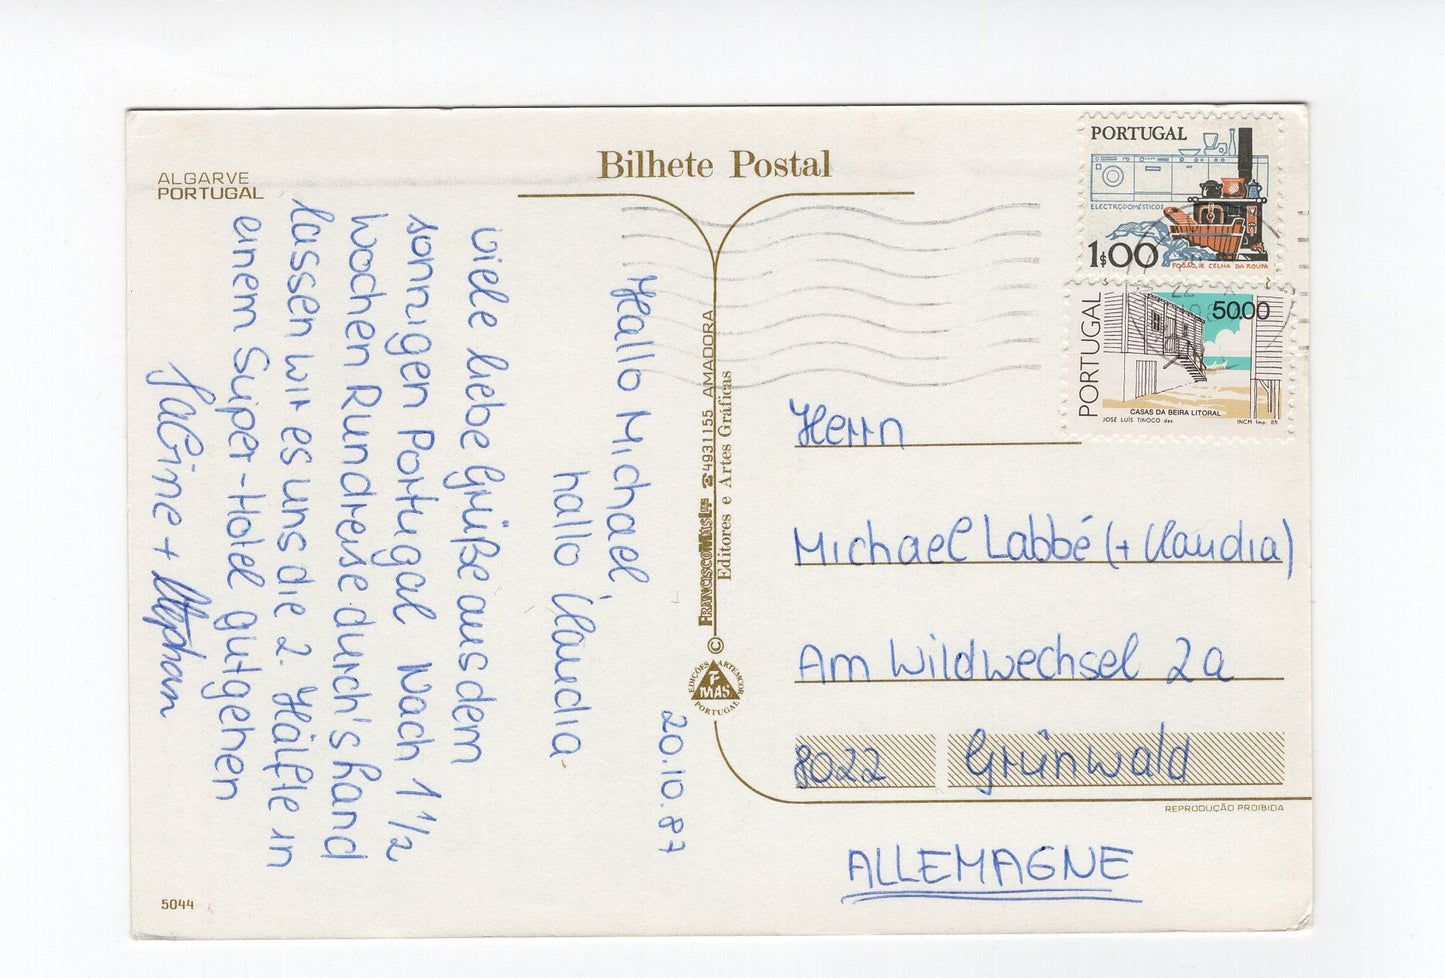 ALGARVE
PORTUGAL
Bilhete Postal
20.10.87
Hallo Michael,
hallo Claudia
viele liebe Grüße aus dem
sonnigen Portugal. Nach 1 1/2
Wochen Rundreise durch's Land
lassen wir es uns die 2. Hälfte in
einem Super-Hotel gutgehen
Sabine + Stephan
5044
FRANCISCO MÁS LDA ☎4931155 AMADORA
Editores e Artes Gráficas
©
EDIÇÕES ARTEMCOR
F
MÁS
PORTUGAL
PORTUGAL
ELECTRODOMÉSTICOS
1$00
FOGÃO, E CELHA DA ROUPA
PORTUGAL
50.00
CASAS DA BEIRA LITORAL
JOSÉ LUÍS TINOCO des. INCM Imp. 85
Herrn
Michael Labbé (+ Claudia)
Am Wildwechsel 2a
8022 Grünwald
REPRODUÇÃO PROIBIDA
ALLEMAGNE